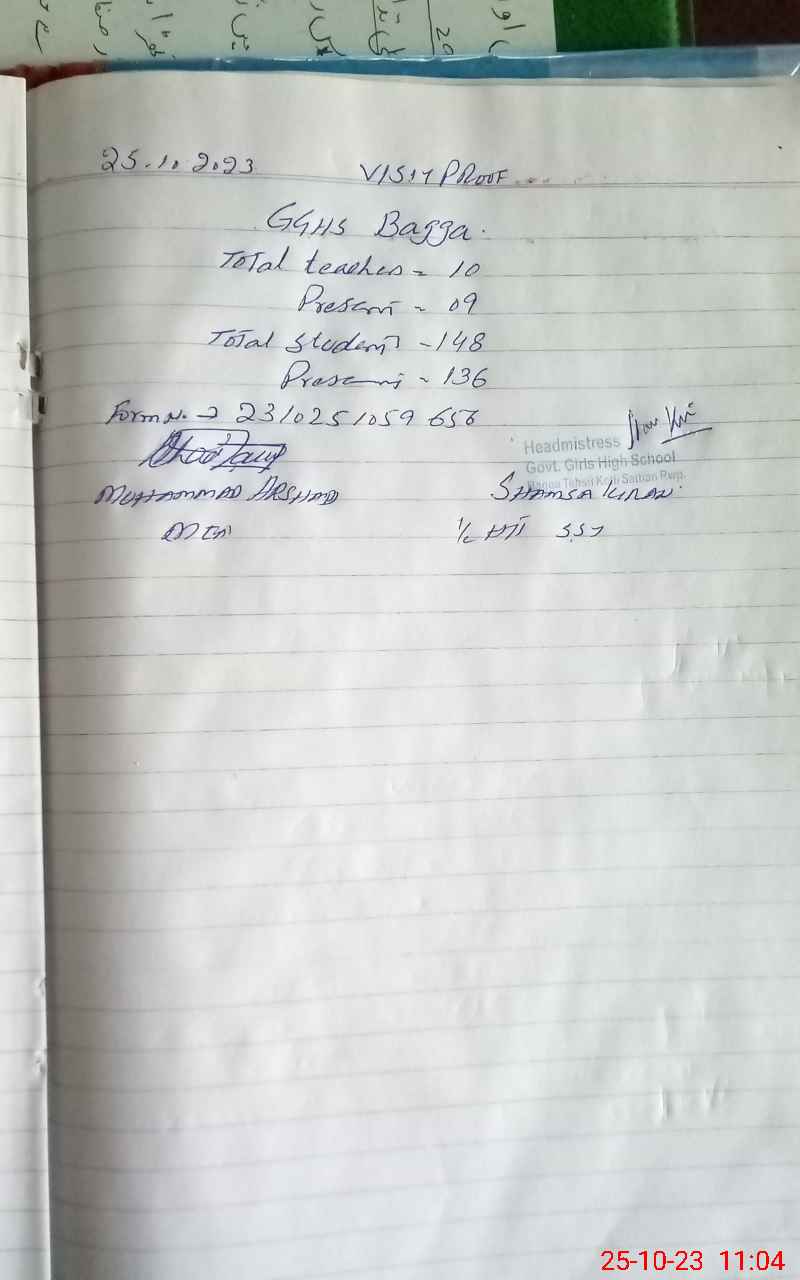 25.10.2023 VISIT PROOF
GGHS Bagga.
Total teacher = 10
Present = 09
Total student - 148
Present = 136
Form N. → 2310251059 656
Headmistress
Govt. Girls High School
MUHAMMAD ARSHAD
SHAMSA KIRAN
I/C SST
25-10-23 11:04